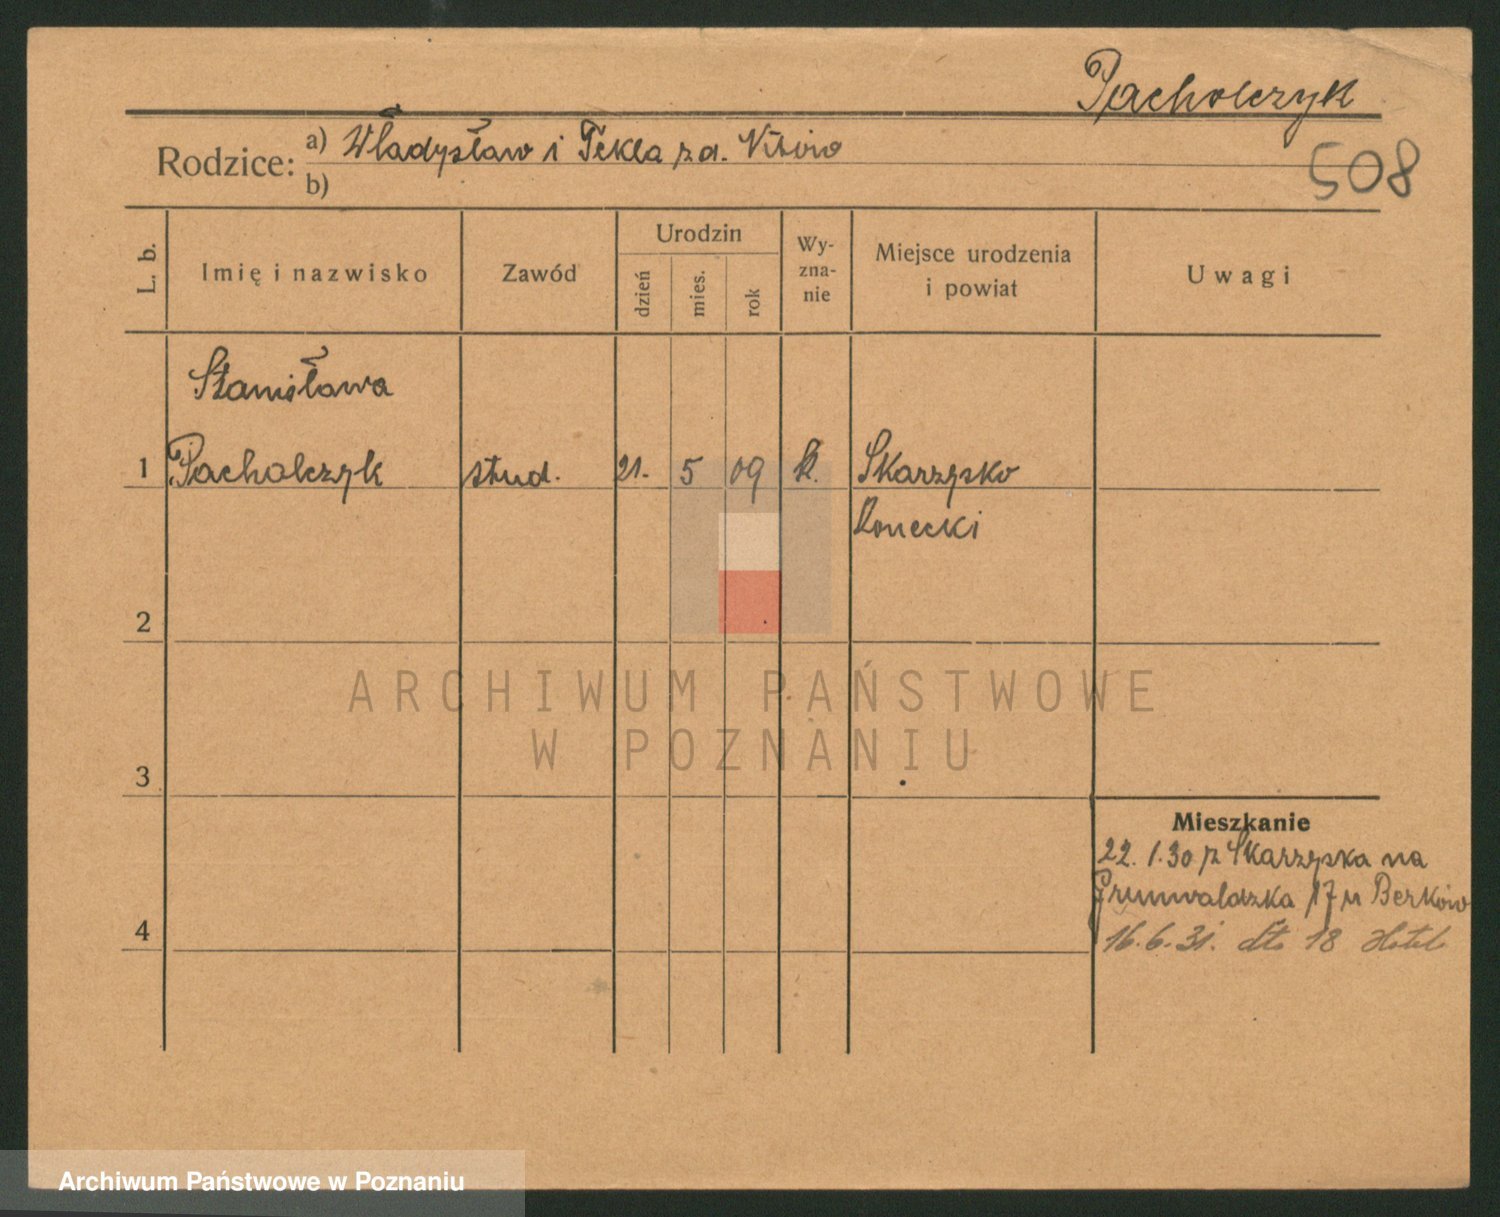 Pacholczyk
508
Rodzice: a) Władysław i Tekla z d.
b)
L. b.
Imię i nazwisko
Zawód
Urodzin
dzień
mies.
rok
Wy-
zna-
nie
Miejsce urodzenia
i powiat
Uwagi
Stanisława
1 Pacholczyk stud. 21. 5 09 k. Skarzysko
Konecki
2
ARCHIWUM PAŃSTWOWE
W POZNANIU
3
Mieszkanie
22. 1.30 z Skarzyska na
Grunwaldzka 17 u Berków
16.6.31. dto 18 Hotel
4
Archiwum Państwowe w Poznaniu